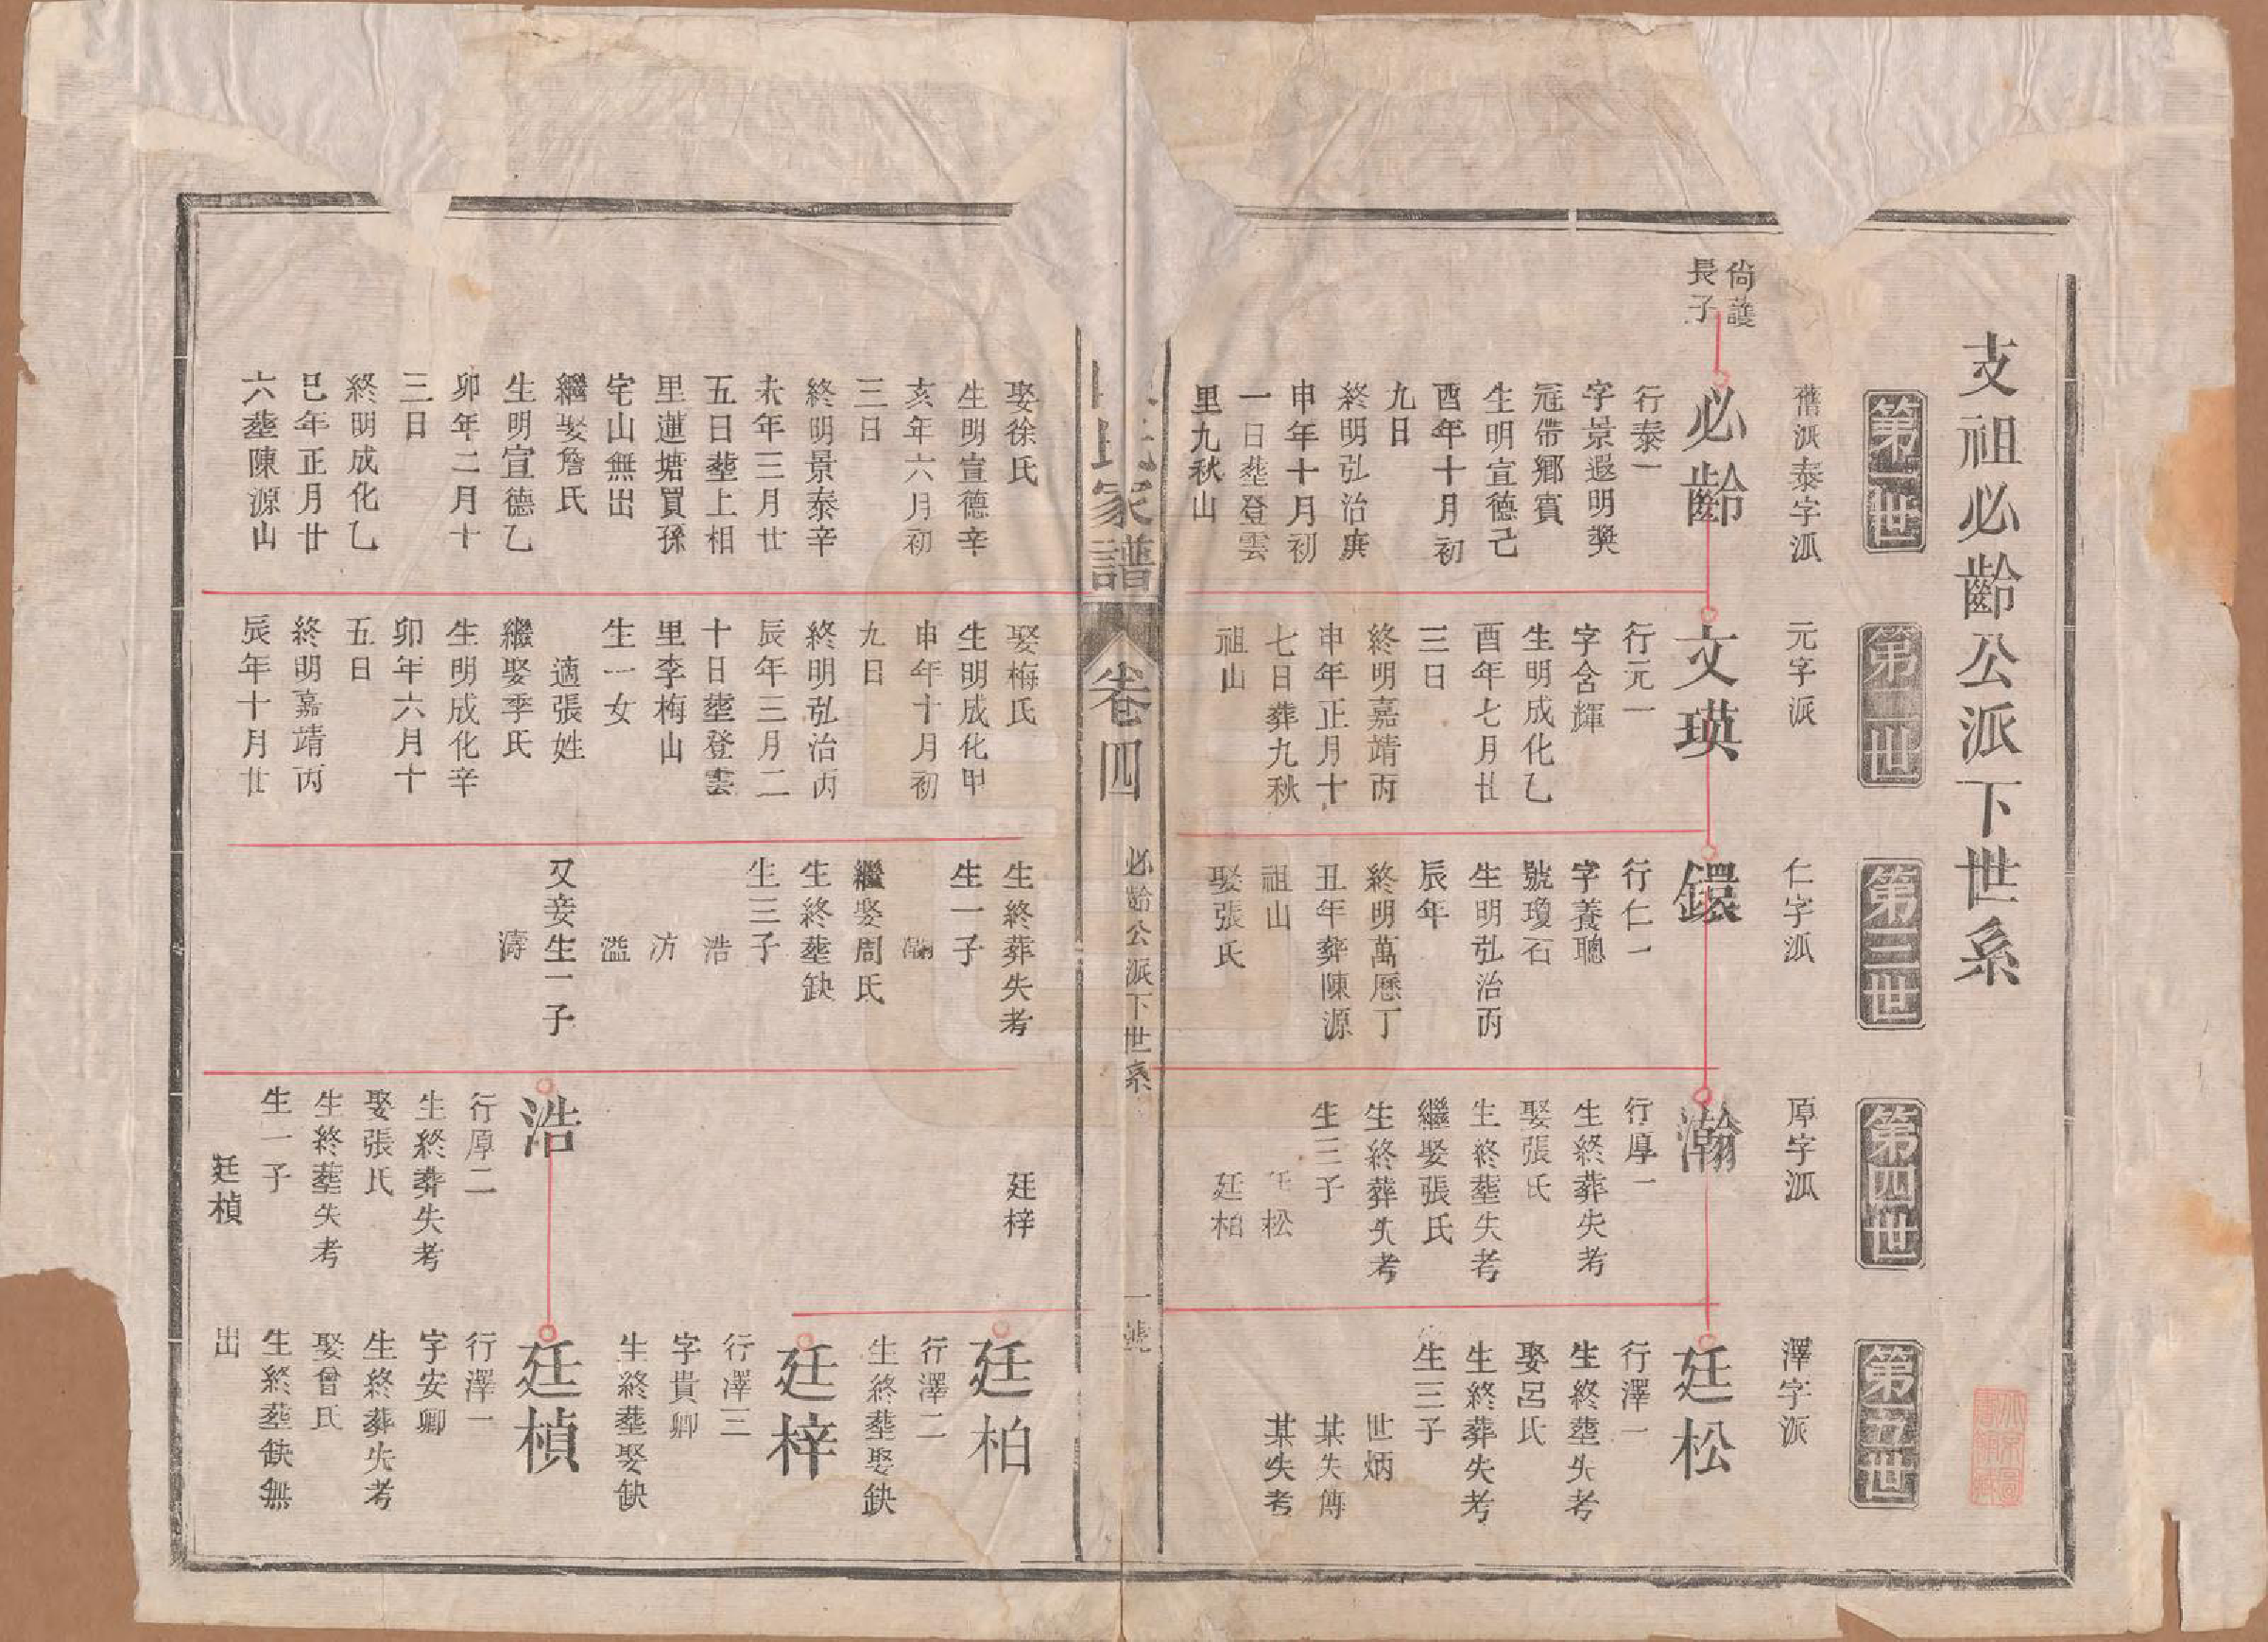 支祖必齡公派下世系
第一世
第二世
第三世
第四世
第五世
舊派泰字派
元字派
仁字派
原字派
澤字派
尙護
長子
必齡
行泰一
字景遐明獎
冠帶鄉賓
生明宣德己
酉年十月初
九日
終明弘治庚
申年十月初
一日塟登雲
里九秋山
娶徐氏
生明宣德辛
亥年六月初
三日
終明景泰辛
未年三月廿
五日塟上相
里蓮塘買孫
宅山無出
繼娶詹氏
生明宣德乙
卯年二月十
三日
終明成化乙
巳年正月廿
六塟陳源山
文瑛
行元一
字含輝
生明成化乙
酉年七月廿
三日
終明嘉靖丙
申年正月十
七日葬九秋
祖山
娶梅氏
生明成化甲
申年十月初
九日
終明弘治丙
辰年三月二
十日塟登雲
里李梅山
生一女
適張姓
繼娶季氏
生明成化辛
卯年六月十
五日
終明嘉靖丙
辰年十月廿
鐶
行仁一
字養聰
號瓊石
生明弘治丙
辰年
終明萬曆丁
丑年葬陳源
祖山
娶張氏
生終葬失考
生一子
瀚
繼娶周氏
生終塟缺
生三子
浩
汸
溢
又妾生一子
濤
瀚
行厚一
生終葬失考
娶張氏
生終塟失考
繼娶張氏
生終葬失考
生三子
廷松
廷柏
廷梓
浩
行厚二
生終葬失考
娶張氏
生終塟失考
生一子
廷楨
廷松
行澤一
生終塟失考
娶呂氏
生終葬失考
生三子
世炳
某失傳
某失考
廷柏
行澤二
生終塟娶缺
廷梓
行澤三
字貴卿
生終塟娶缺
廷楨
行澤一
字安卿
生終葬失考
娶曾氏
生終塟缺無
出
氏家譜
卷四
必齡公派下世系
一號